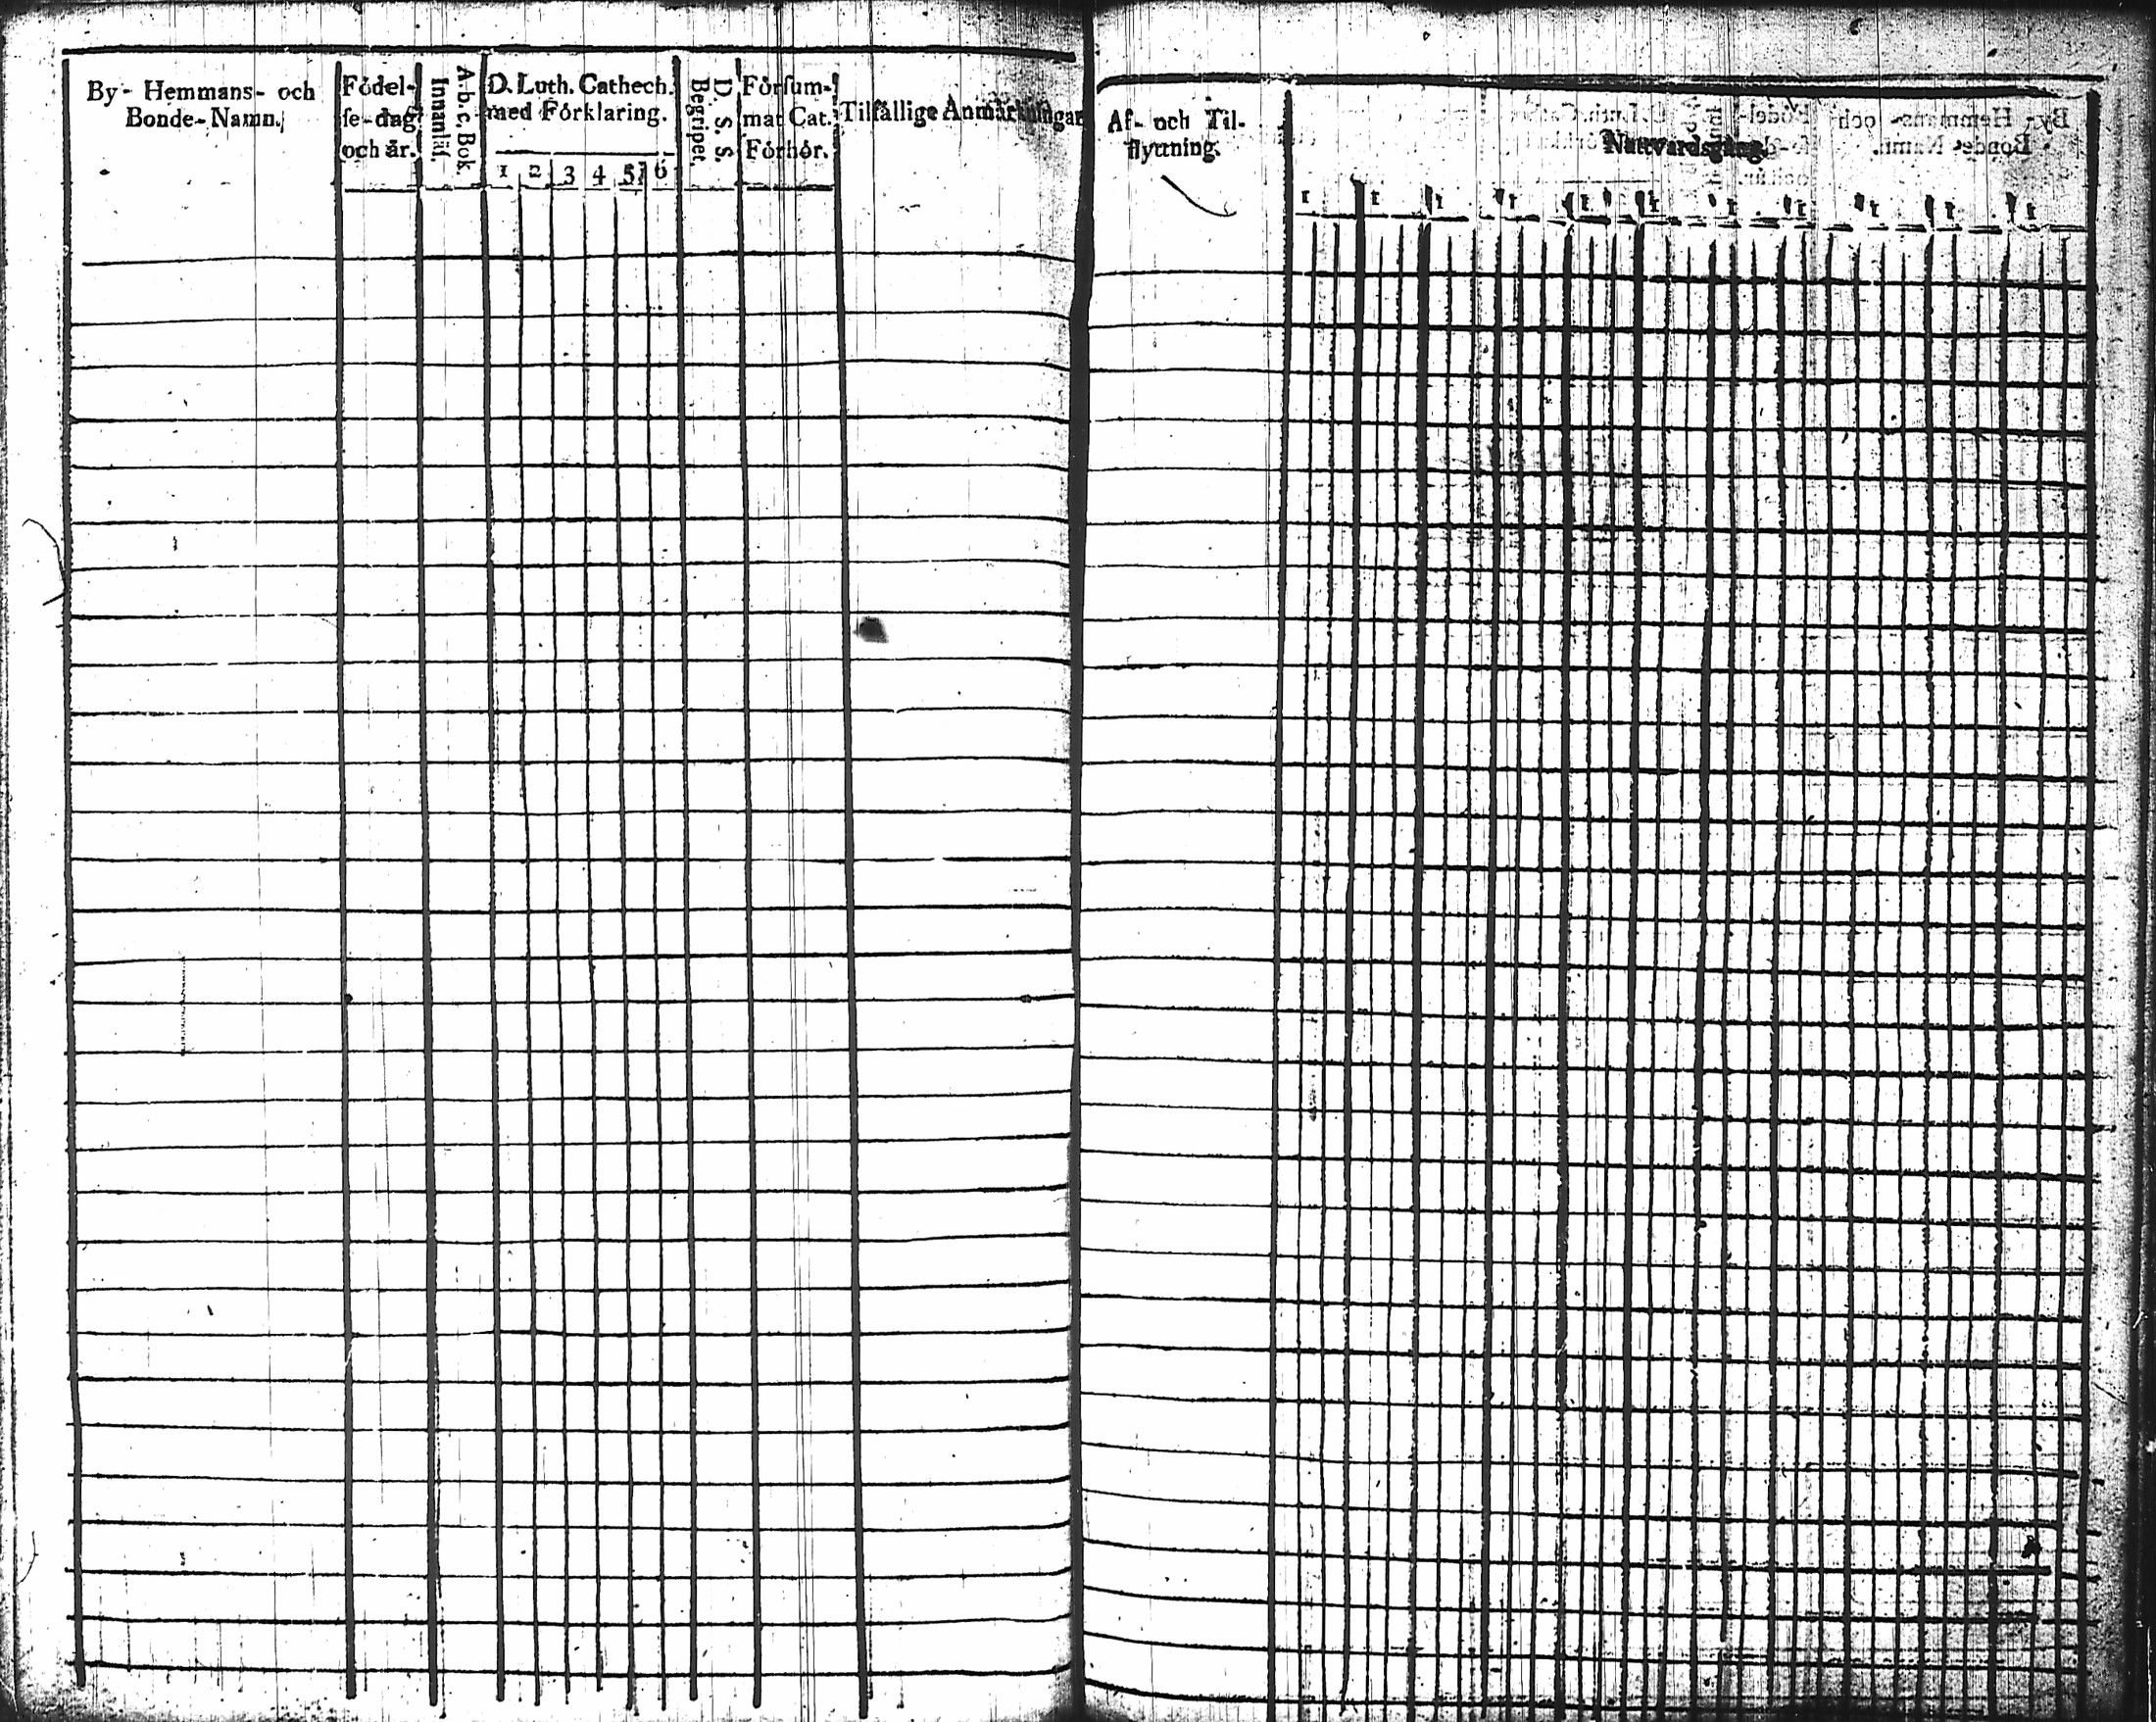 By- Hemmans- och
Bonde-Namn.
Födel-
se-dag
och år.
A.b.c. Bok.
Innanlä
D. Luth. Cathech.
med Förklaring.
1 2 3 4 5 6
D. S. S.
Begripet.
Försum-
mat Cat.
Förhör.
Tilfällige Anmärkningar
Af- och Til-
flyttning.
Nattvardsgång.
1 1 1 1 1 1 1 1 1 1 1